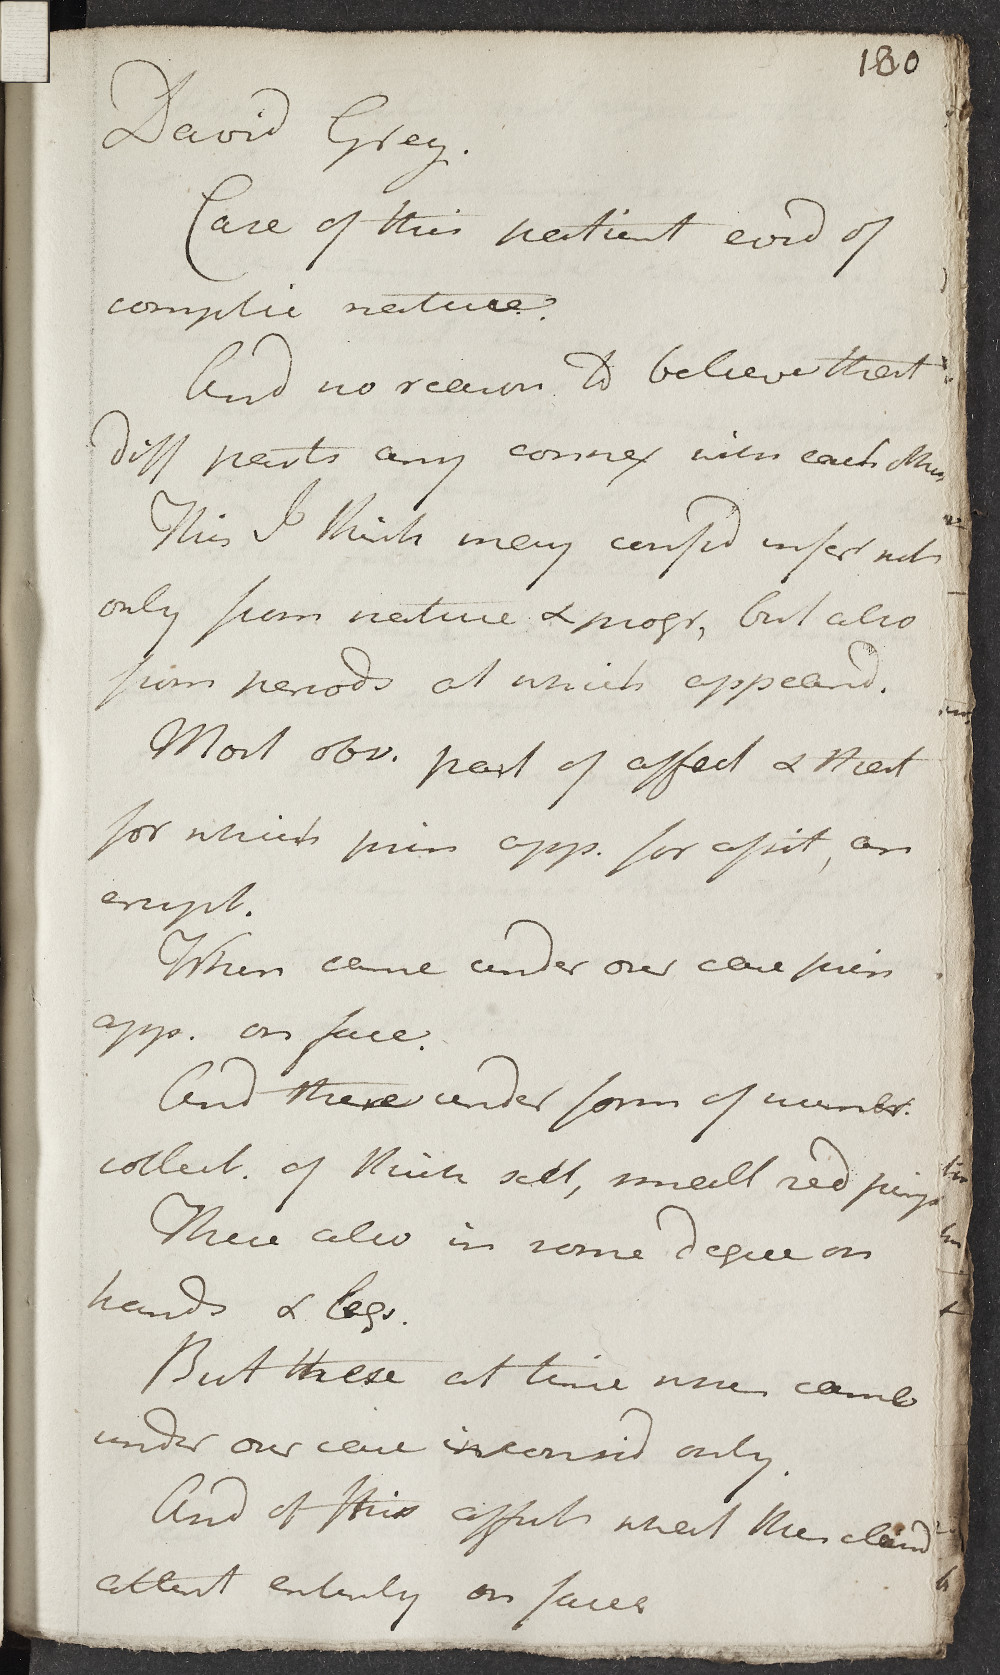 180
David Grey.
Case of this patient evid of
complic nature.
And no reason to believe that
diff parts any connex with each other
This I think may confid infer not
only from nature & progr, but also
from periods at which appeared.
Most obv. part of affect & that
for which prin app. for assist, an
erupt.
When came under our care prin
app. on face.
And there under form of numbr.
collect. of thick set, small red pimp
There also in some degree on
hands & legs.
But these at time when came
under our care inconsid only.
And of this affect what then claimd
attent entirely on face